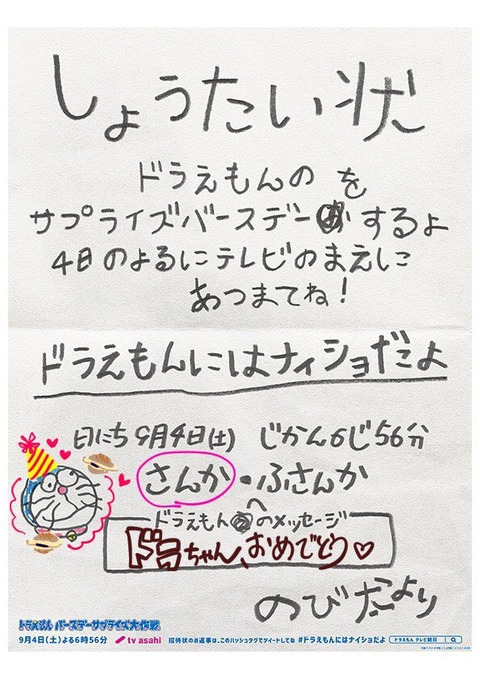 しょうたい状
ドラえもんのを
サプライズバースデーするよ
4日のよるにテレビのまえに
あつまてね!
ドラえもんにはナイショだよ
日にち 9月4日(土) じかん6じ56分
さんか・ふさんか
ドラえもんへのメッセージ
ドラちゃん、おめでとう♡
のび太より
ドラえもん バースデーサプライズ大作戦
9月4日(土)よる6時56分 tv asahi 招待状のお返事は、このハッシュタグでツイートしてね #ドラえもんにはナイショだよ ドラえもん テレビ朝日